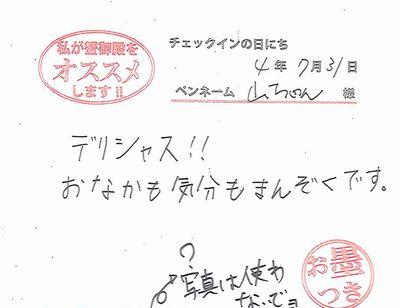 私が蟹御殿を
オススメ
します!!
チェックインの日にち
4年7月31日
ペンネーム 山ちゃん 様
デリシャス!!
おなかも気分もまんぞくです。
?
写真は使わ
ないでョ
お墨
つき